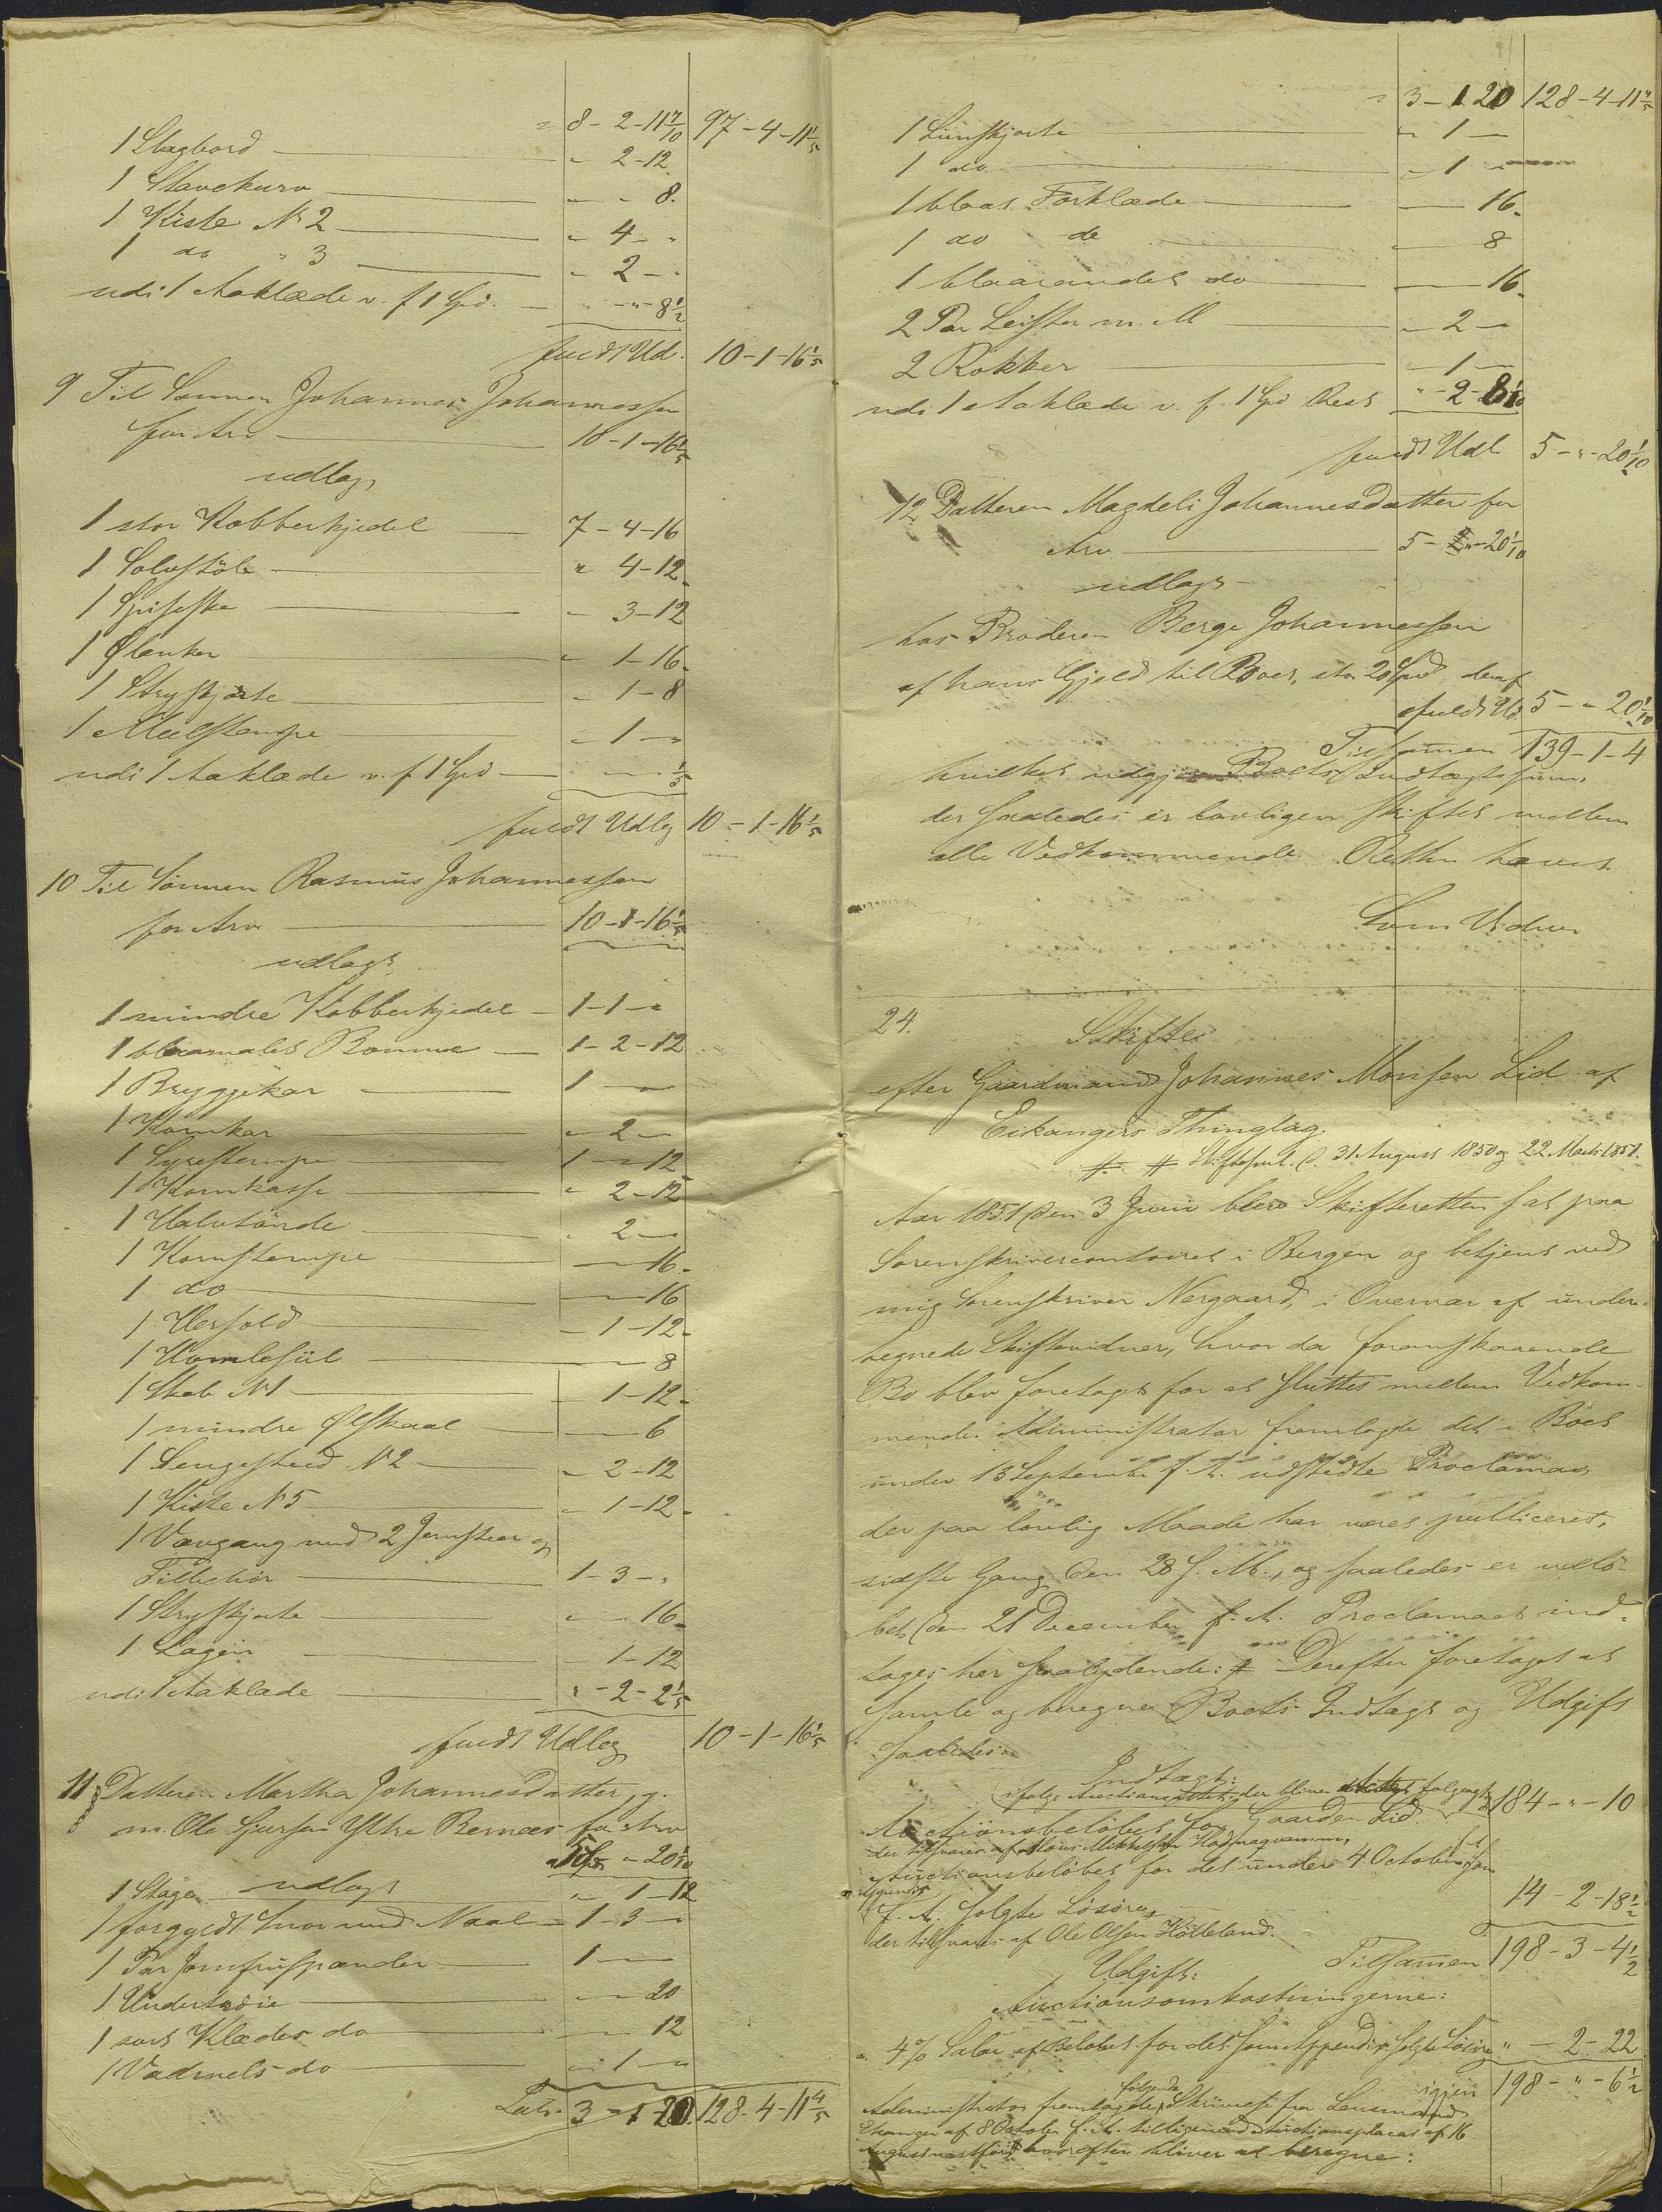 " 8-2-11 7/10 97-4-11 1/5
1 Slagbord " 2-12
1 Stavekurv " " 8.
1 Kiste No 2 " 4 "
1 do " 3 " 2 "
udi 1 Aaklæde v. f 1 Spd. " " 8 1/2
fuldt Udl. 10-1-16 1/5
9 Til Sønnen Johannes Johannessen
for Arv 10-1-16 1/5
udlagt
1 stor Kobberkjedel 7-4-16
1 Sølvstöb " 4-12
1 Spiseske " 3-12
1 Ølanker " 1-16
1 Stryskjorte " 1-8
1 Meelstampe " 1 "
udi 1 Aaklæde v. f 1 Spd " " 1/5
fuldt Udlæg 10-1-16 1/5
10 Til Sønnen Rasmus Johannessen
for Arv 10-1-16 1/5
udlagt
1 mindre Kobberkjedel 1-1-"
1 blaamalet Bomme 1-2-12
1 Bryggekar 1 "
1 Kornkar " 2 "
1 Syrestampe 1 " 12
1 Kornkasse " 2-12
1 Halvtönde " 2 "
1 Kornstampe " " 16
1 do " " 16
1 Hersold " 1-12
1 Homlesüel " " 8
1 Skab No 1 " 1-12
1 mindre Ølskaal " " 6
1 Sengested No 2 " 2-12
1 Kiste No 5 " 1-12
1 Vævgang med 2 Jernsteer og
Tilbehör 1-3-"
1 Stryskjorte " " 16
1 Lagen " 1-12
udi 1 Aaklæde " 2-2 1/5
fuldt Udlæg 10-1-16 1/5
11 Datteren Martha Johannesdatter, g.
m. Ole Sjursen Ytre Bernæs for Arv
5 " 20 1/10
1 Stage udlagt " 1-12
1 forgyldt Snor med Naal 1-3-"
1 Par Jomfruspænder 1 "
1 Undertröie " " 20
1 sort Klædes do " " 12
1 Vadmels do " 1 "
Lat. 3-1-20. 128-4-11 4/5
" 3-1 20 128-4-11 4/5
1 Linskjorte " 1 "
1 do " 1 "
1 blaat Forklæde " 16
1 do do " 8
1 blaarandet do " 16
2 Par Leister m. M " 2 "
2 Rokker " 1 "
udi 1 Aaklæde v. f. 1 Spd Rest " 2-8 1/10
fuldt Udl 5-"-20 1/10
12 Datteren Magdeli Johannesdatter for
Arv 5-"-20 1/10
udlagt
hos Broderen Berge Johannessen
af hans Gjeld til Boet, stor 20 Spd, deraf
fuldt Ud. 5-"-20 1/10
Tilsamen 139-1-4
hvilket udgjør Boets Indtægtssum,
der saaledes er lovligen skiftet mellem
alle Vedkommende. Retten hævet.
Som Vidner
24.
Skifte
efter Gaardmand Johannes Monsen Lid af
Eikangers Thinglag.
# # Skifteprot. C. 31 August 1850 og 22 Marts 1851.
Aar 1851 den 3 Juni blev Skifteretten sat paa
Sorenskrivercontoiret i Bergen og betjent ved
mig Sorenskriver Nergaard, i Overvær af under-
tegnede Skiftevidner, hvor da foranstaaende
Bo blev foretaget for at sluttes mellem Vedkom-
mende. Administrator fremlagde det i Boet
under 13 September f. A. udstedte Proclama,
der paa lovlig Maade har været publiceret,
sidste Gang den 28 s. M., og saaledes er udlö-
bet den 21 December f. A. Proclamaet ind-
tages her saalydende: # Derefter foretoges at
samle og beregne Boets Indtægt og Udgift
saaledes:
Indtægt:
ifølge Auctions der bliver følgagtig
Auctionsbeløbet for Gaarden Lid 184-"-10
der tilsvares af Mons Mikkelsen Hodnequamme,
Auctionsbeløbet for det under 4 October som
Appendix
f. A. solgte Lösöre, 14-2-18 1/2
der tilsvares af Ole Olsen Hölleland.
Tilsamen 198-3-4 1/2
Udgift:
Auctionsomkostningerne:
a. 4% Salær af Beløbet for det som Appendix solgte Lösöre " - 2-22
igjen 198-"-6 1/2
følgende
Administrator fremlagde Skrivelse fra Lensmand
Ekanger af 8 October f. A. tilligemed Auctionsplacat af 16
August næstfør hvorefter bliver at beregne: